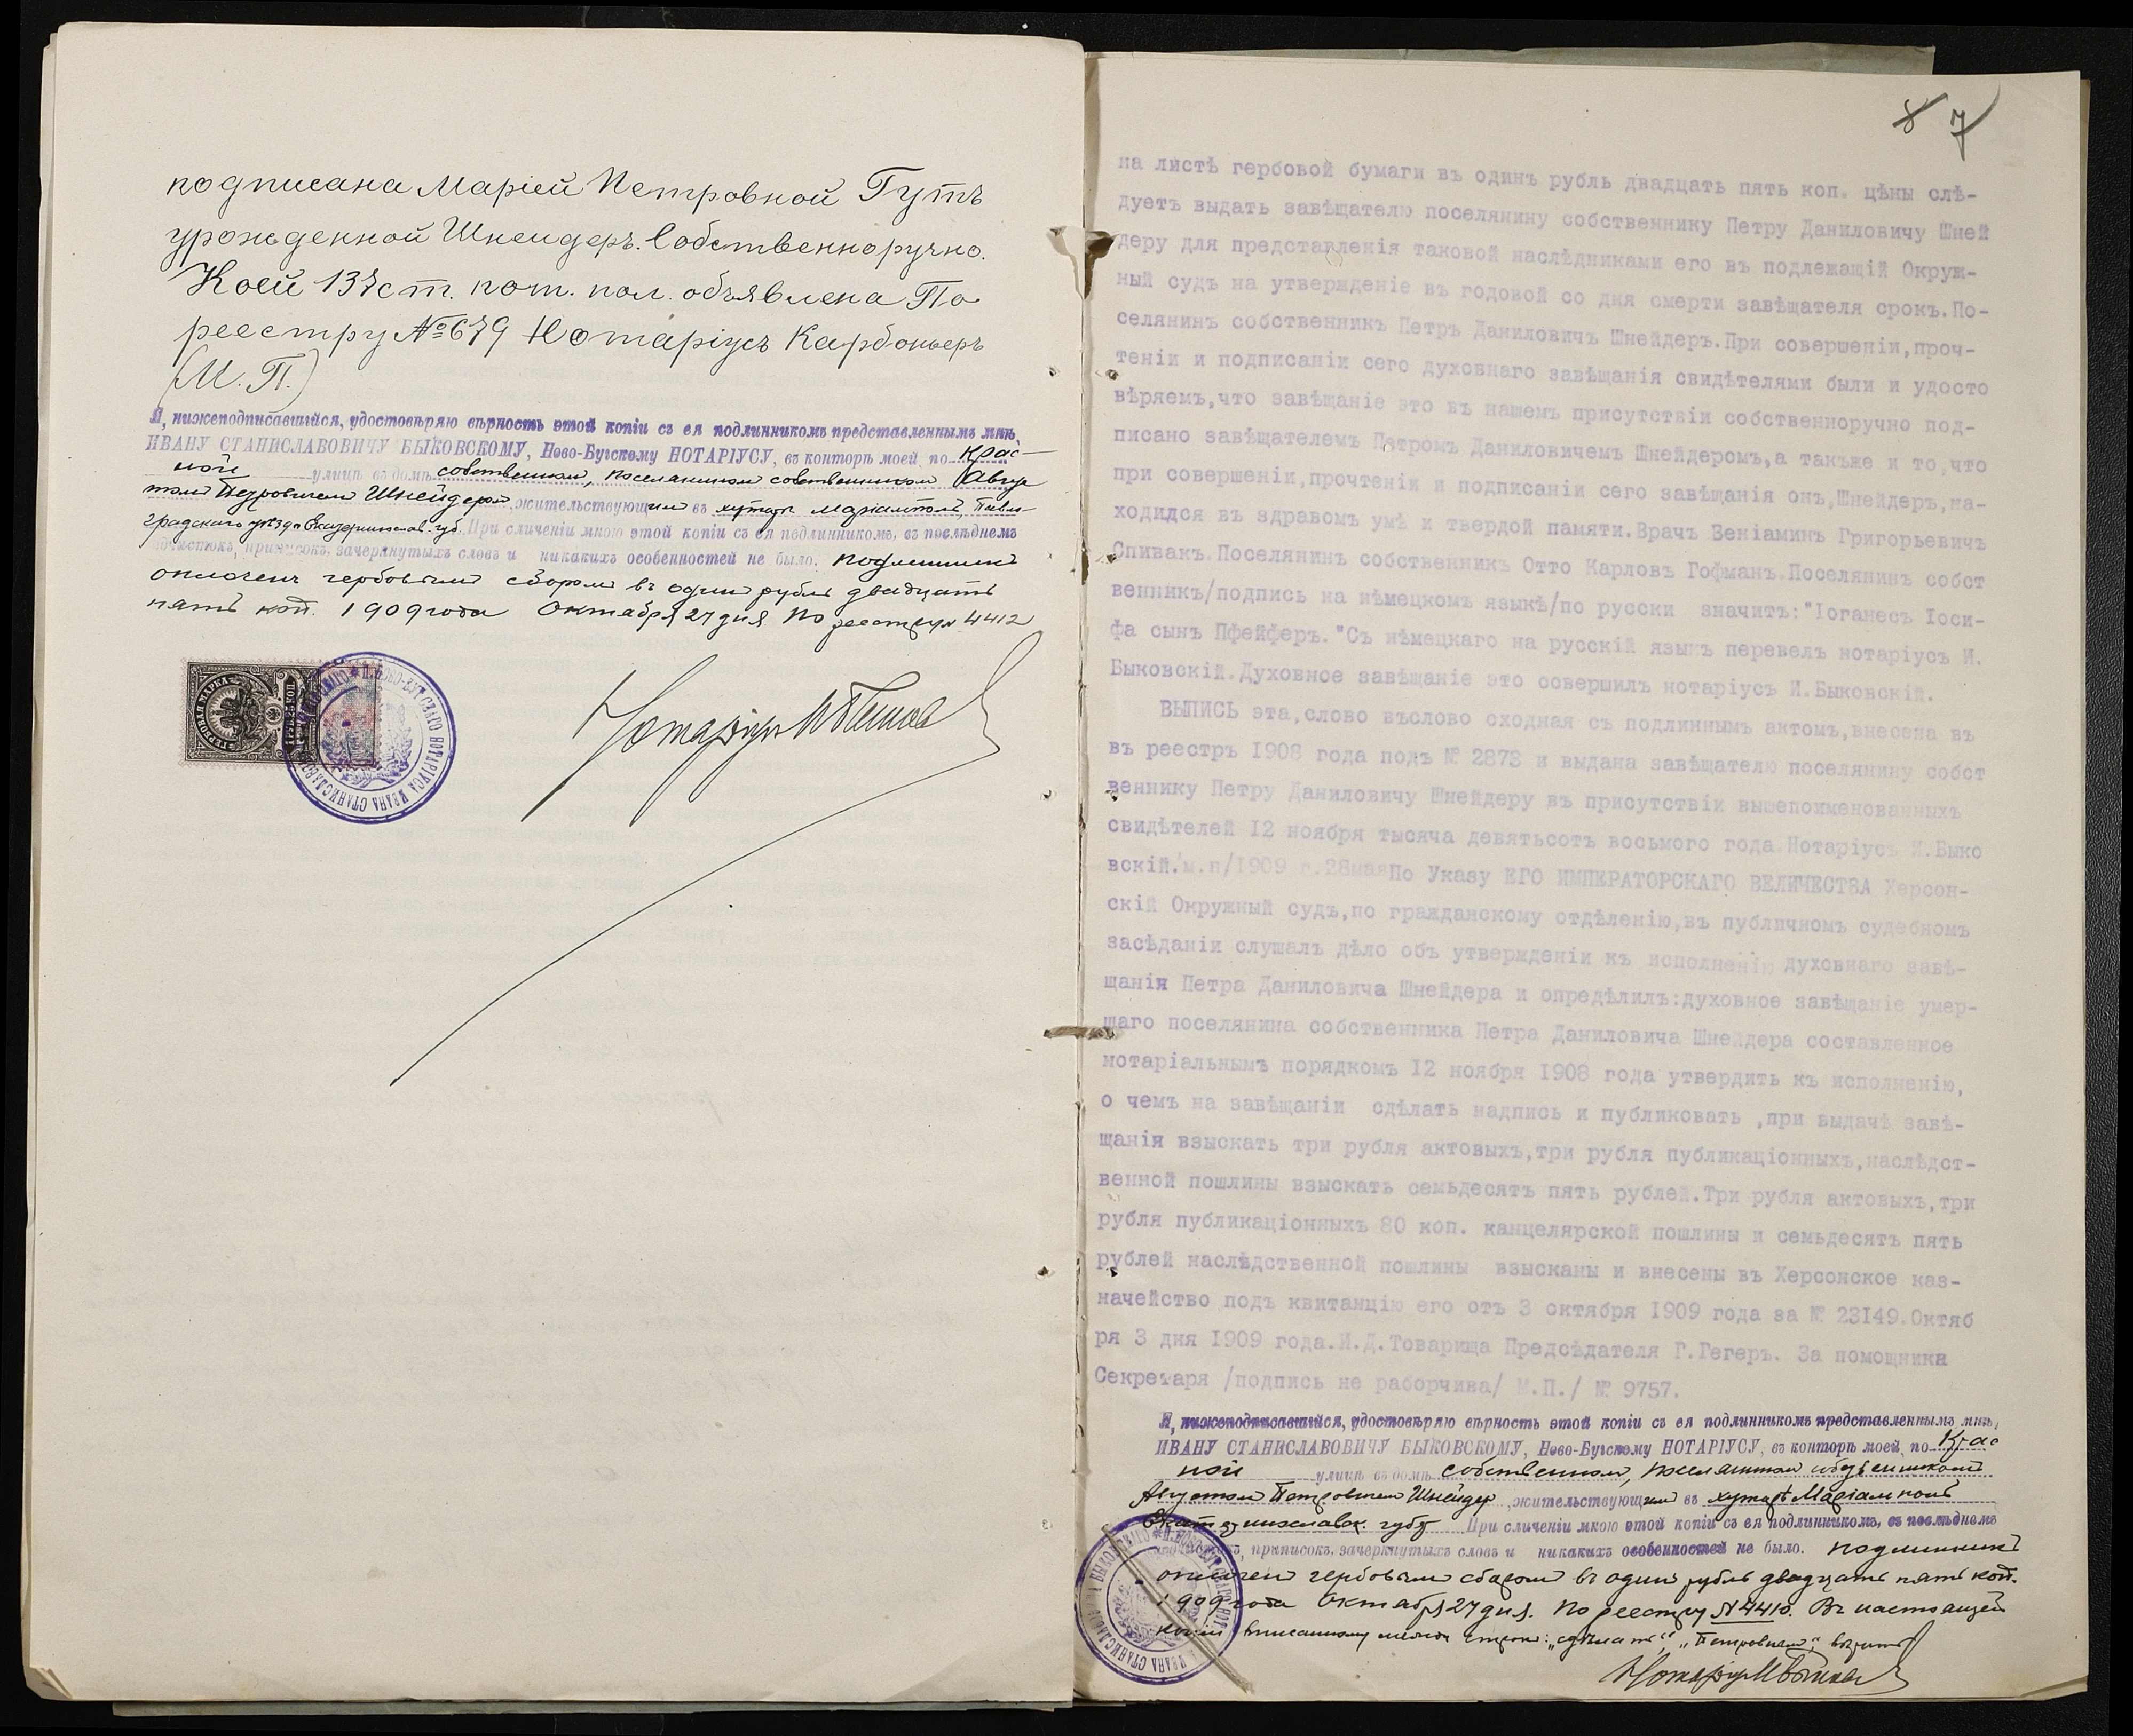 подписана Маріей Петровной Гутъ
урожденной Шнейдеръ. Собственноручно.
Коей 137 ст. нот. пол. объявлена По
реестру № 679 Нотаріусъ Карбоньеръ
(М. П.)
Я, нижеподписавшійся, удостовѣряю вѣрность этой копіи съ ея подлинникомъ представленнымъ мнѣ,
ИВАНУ СТАНИСЛАВОВИЧУ БЫКОВСКОМУ, Ново-Бугскому НОТАРІУСУ, въ конторѣ моей по Крас-
ной улицѣ въ домѣ собственном, поселянином собственником Авгус
том Петровичем Шнейдером жительствующим въ хуторѣ Маріамполь, Павло-
градскаго уѣзда Екатеринослав. губ. При сличеніи мною этой копіи съ ея подлинникомъ, въ послѣднемъ
подчистокъ, приписокъ, зачеркнутыхъ словъ и никакихъ особенностей не было. Подлинникъ
оплоченъ гербовым сбором въ один рубль двадцать
пять коп. 1909 года Октября 27 дня По реестру № 4412
Нотаріусъ И Быков
8 7
на листѣ гербовой бумаги въ одинъ рубль двадцать пять коп. цѣны слѣ-
дуетъ выдать завѣщателю поселянину собственнику Петру Даниловичу Шней
деру для представленія таковой наслѣдниками его въ подлежащій Окруж-
ный судъ на утвержденіе въ годовой со дня смерти завѣщателя срокъ.По-
селянинъ собственникъ Петръ Даниловичъ Шнейдеръ.При совершеніи,проч-
теніи и подписаніи сего духовнаго завѣщанія свидѣтелями были и удосто
вѣряемъ,что завѣщаніе это въ нашемъ присутствіи собственноручно под-
писано завѣщателемъ Петромъ Даниловичемъ Шнейдеромъ,а такъже и то,что
при совершеніи,прочтеніи и подписаніи сего завѣщанія онъ,Шнейдеръ,на-
ходился въ здравомъ умѣ и твердой памяти.Врачъ Веніаминъ Григорьевичъ
Спивакъ.Поселянинъ собственникъ Отто Карловъ Гофманъ.Поселянинъ собст
венникъ/подпись на нѣмецкомъ языкѣ/по русски значитъ:"Іоганесъ Іоси-
фа сынъ Пфейферъ."Съ нѣмецкаго на русскій языкъ перевелъ нотаріусъ И.
Быковскій.Духовное завѣщаніе это совершилъ нотаріусъ И.Быковскій.
ВЫПИСЬ эта,слово въслово сходная съ подлиннымъ актомъ,внесена въ
въ реестръ 1908 года подъ № 2873 и выдана завѣщателю поселянину собст
веннику Петру Даниловичу Шнейдеру въ присутствіи вышепоименованныхъ
свидѣтелей 12 ноября тысяча девятьсотъ восьмого года.Нотаріусъ И.Быко
вскій./м.п/1909 г.28маяПо Указу ЕГО ИМПЕРАТОРСКАГО ВЕЛИЧЕСТВА Херсон-
скій Окружный судъ,по гражданскому отдѣленію,въ публичномъ судебномъ
засѣданіи слушалъ дѣло объ утвержденіи къ исполненію духовнаго завѣ-
щанія Петра Даниловича Шнейдера и опредѣлилъ:духовное завѣщаніе умер-
шаго поселянина собственника Петра Даниловича Шнейдера составленное
нотаріальнымъ порядкомъ 12 ноября 1908 года утвердить къ исполненію,
о чемъ на завѣщаніи сдѣлать надпись и публиковать ,при выдачѣ завѣ-
щанія взыскать три рубля актовыхъ,три рубля публикаціонныхъ,наслѣдст-
венной пошлины взыскать семьдесятъ пять рублей.Три рубля актовыхъ,три
рубля публикаціонныхъ 80 коп. канцелярской пошлины и семьдесятъ пять
рублей наслѣдственной пошлины взысканы и внесены въ Херсонское каз-
начейство подъ квитанцію его отъ 3 октября 1909 года за № 23149.Октяб
ря 3 дня 1909 года.И.Д.Товарища Предсѣдателя Г.Гегеръ. За помощника
Секретаря /подпись не раборчива/ М.П./ № 9757.
Я, нижеподписавшійся, удостовѣряю вѣрность этой копіи съ ея подлинникомъ представленнымъ мнѣ,
ИВАНУ СТАНИСЛАВОВИЧУ БЫКОВСКОМУ, Ново-Бугскому НОТАРІУСУ, въ конторѣ моей по Крас
ной улицѣ въ домѣ собственном, поселянином собственником
Августом Петровичем Шнейдер жительствующим въ хуторѣ Маріамполь
Екатеринославск. губ. При сличеніи мною этой копіи съ ея подлинникомъ, въ послѣднемъ
приписокъ, зачеркнутыхъ словъ и никакихъ особенностей не было. Подлинникъ
оплочен гербовым сбором въ один рубль двадцать пять коп.
1909 года Октября 27 дня. По реестру № 4410. Въ настоящей
копіи вписанному между строк: „сдѣлать", „Петровичем" вѣрить
Нотаріусъ И Быков